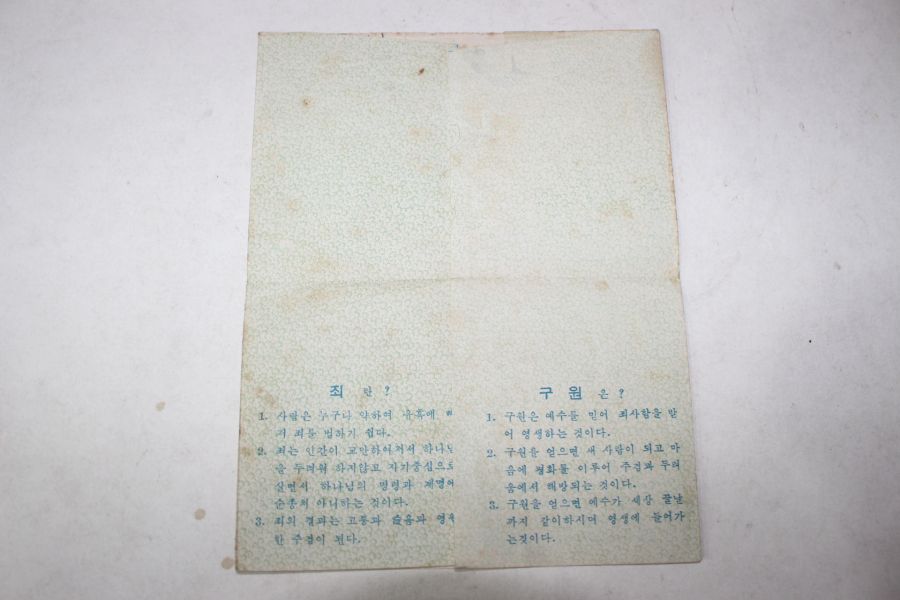 죄 란?
1. 사람은 누구나 약하여 유혹에
져 죄를 범하기 쉽다.
2. 죄는 인간이 교만하여져서 하나님
을 두려워 하지않고 자기중심으로
살면서 하나님의 명령과 계명에
순종치 아니하는 것이다.
3. 죄의 결과는 고통과 슬픔과 영원
한 주검이 된다.
구 원 은?
1. 구원은 예수를 믿어 죄사함을 받
어 영생하는 것이다.
2. 구원을 얻으면 새 사람이 되고 마
음에 평화를 이루어 주검과 두려
움에서 해방되는 것이다.
3. 구원을 얻으면 예수가 세상 끝날
까지 같이하시며 영생에 들어가
는것이다.